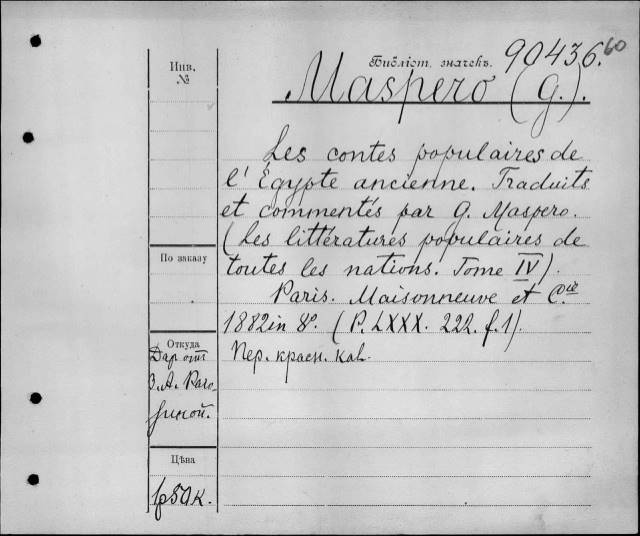 Библіот. значекъ 90436. 60
Инв. №
Maspero (G.).
Les contes populaires de
l'Égypte ancienne. Traduits
et commentés par G. Maspero.
(Les littératures populaires de
toutes les nations. Tome IV).
Paris. Maisonneuve et C.ie
1882 in 8°. (P. LXXX. 222. f. 1).
Пер. красн. кал.
По заказу
Откуда
Даръ отъ
З. А. Раго-
зиной.
Цѣна
50 к.